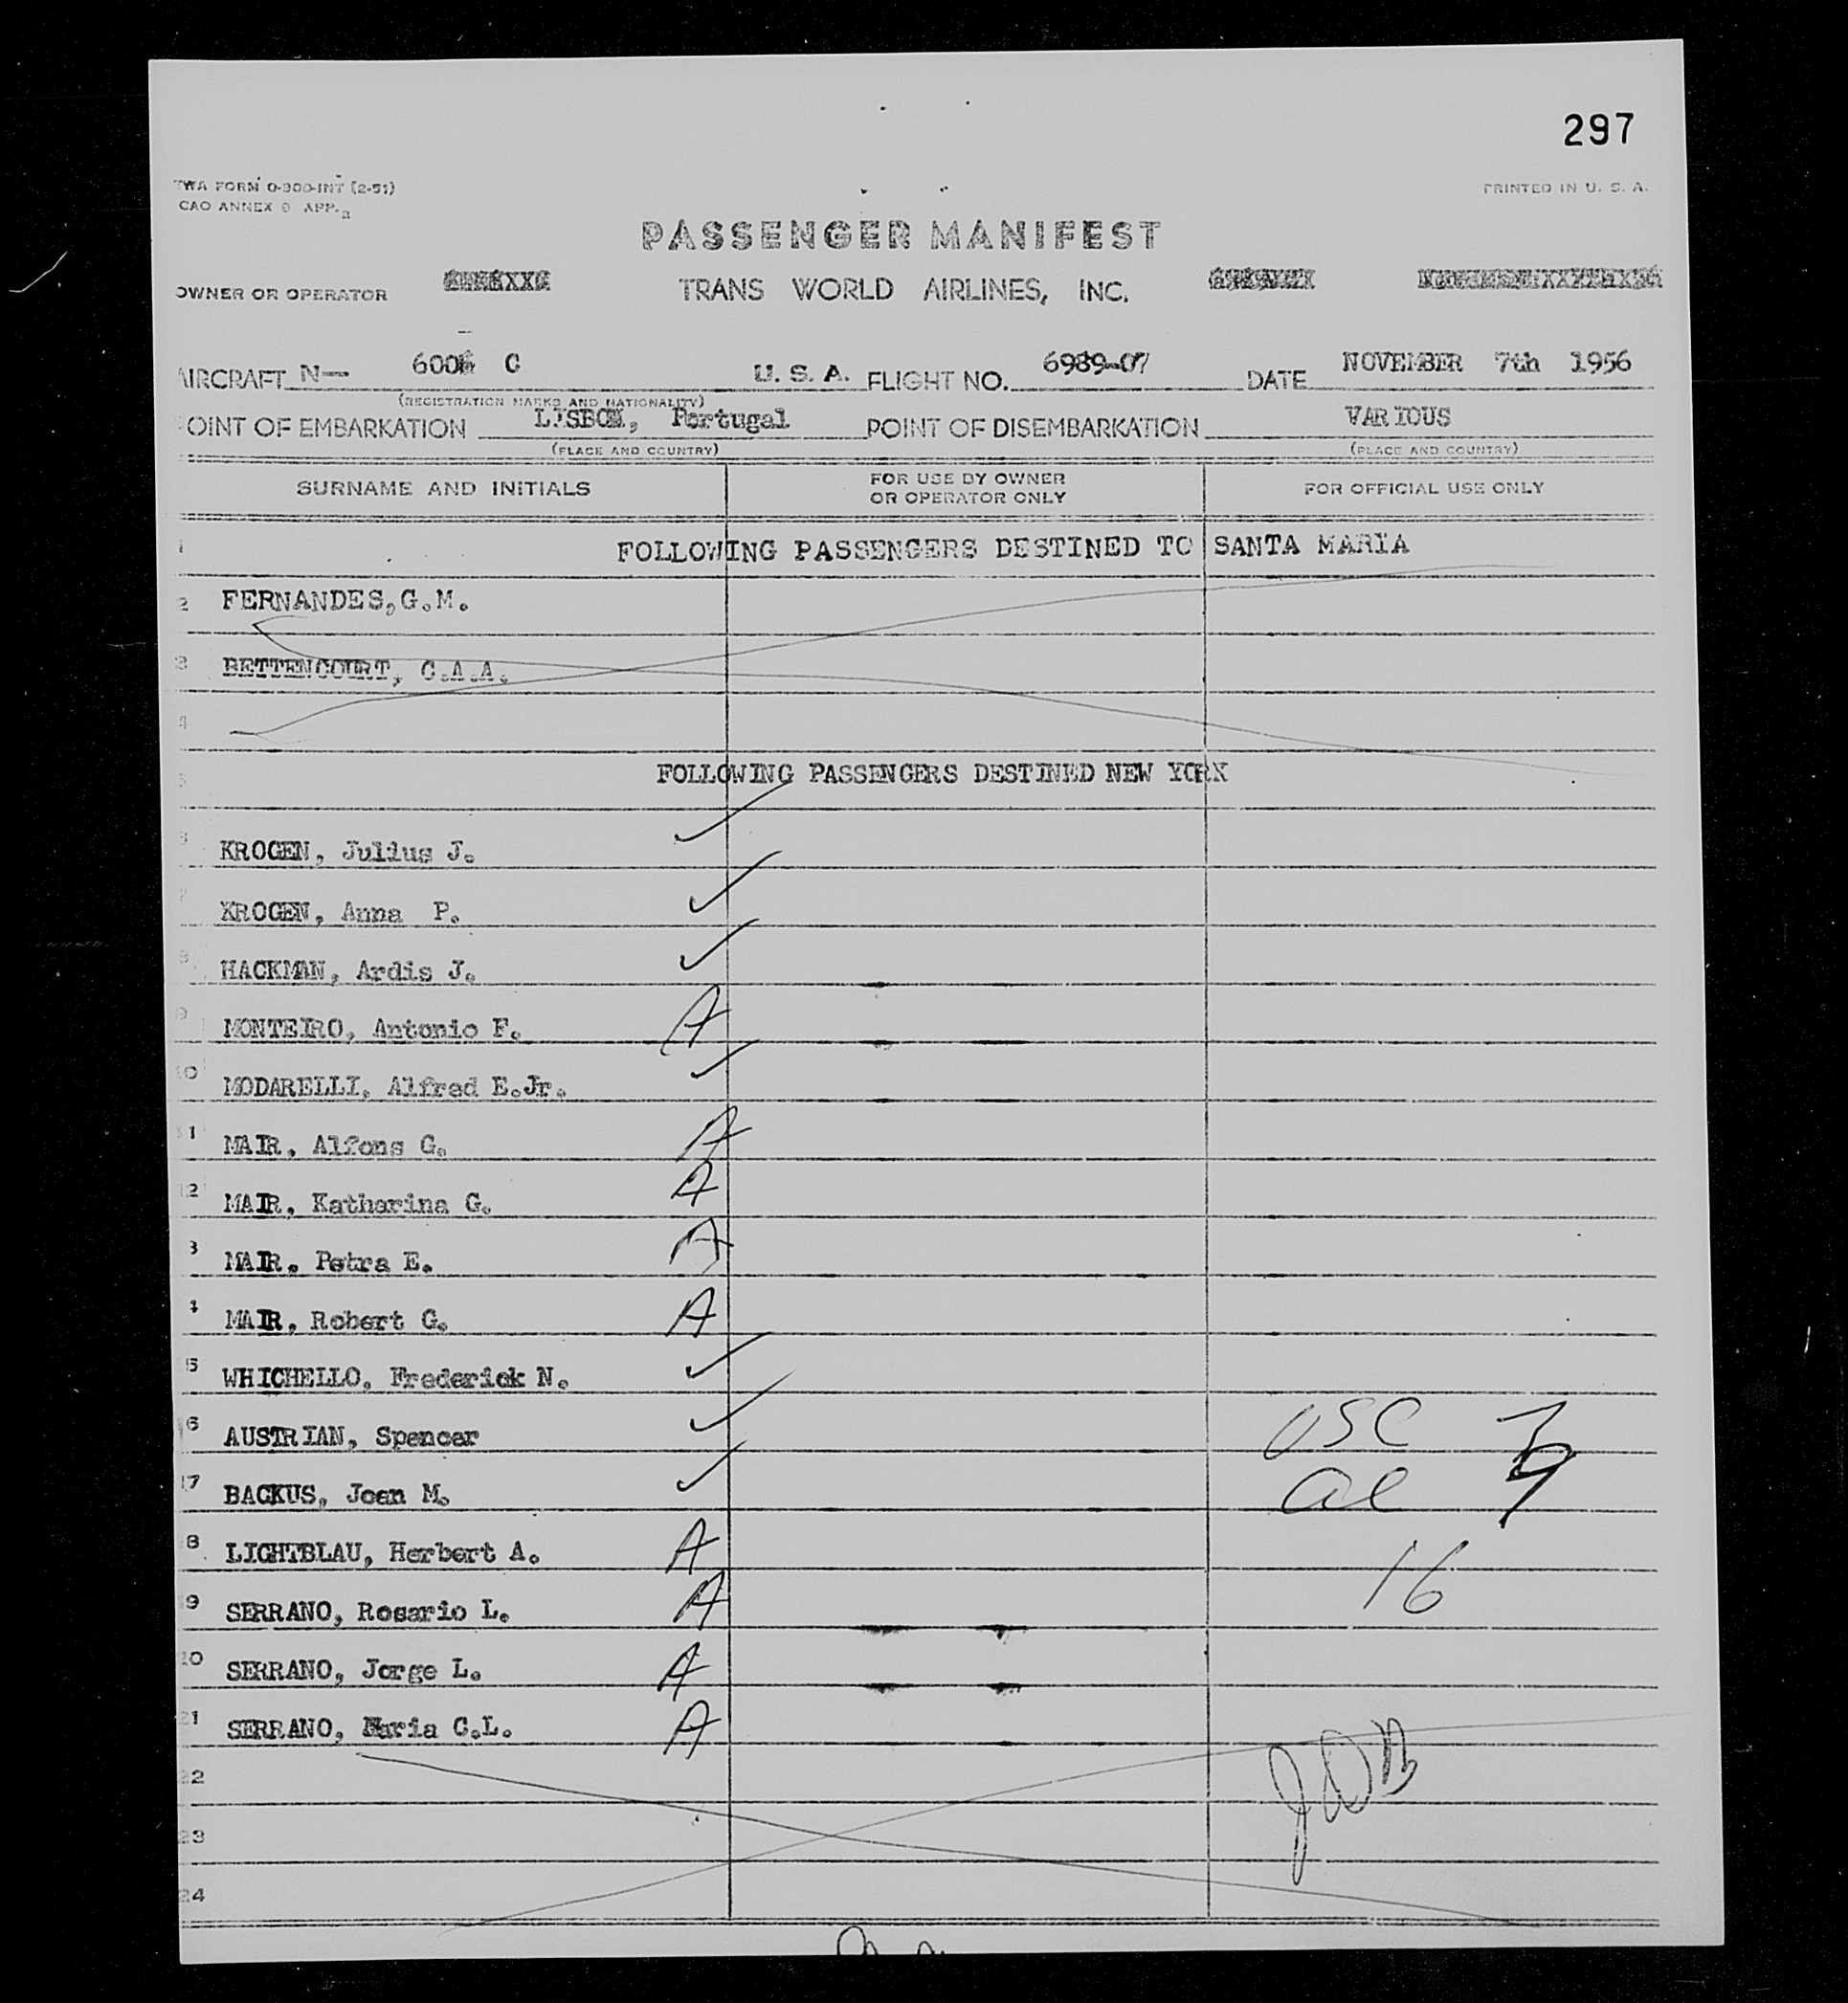 297
TWA FORM 0-300-INT (2-51)
PRINTED IN U. S. A.
CAO ANNEX 9 APP.
PASSENGER MANIFEST
OWNER OR OPERATOR TRANS WORLD AIRLINES, INC.
AIRCRAFT N— C U. S. A. FLIGHT NO. 6989-07 DATE NOVEMBER 7th 1956
(REGISTRATION MARKS AND NATIONALITY)
OINT OF EMBARKATION LISBON, Portugal POINT OF DISEMBARKATION VARIOUS
(PLACE AND COUNTRY) (PLACE AND COUNTRY)
SURNAME AND INITIALS FOR USE BY OWNER OR OPERATOR ONLY FOR OFFICIAL USE ONLY
1 FOLLOWING PASSENGERS DESTINED TO SANTA MARIA
2 FERNANDES,G.M.
3 BETTENCOURT, C.A.A.
4
5 FOLLOWING PASSENGERS DESTINED NEW YORK
KROGEN, Julius J. ✓
7 KROGEN, Anna P. ✓
8 HACKMAN, Ardis J. ✓
9 MONTEIRO, Antonio F. A
10 MODARELLI, Alfred E.Jr. ✓
1 MAIR, Alfons G. A
12 MAIR, Katharina G. A
3 MAIR, Petra E. A
4 MAIR, Robert G. A
5 WHICHELLO, Frederick N. ✓
16 AUSTRIAN, Spencer ✓ USC 7
17 BACKUS, Joan M. ✓ al 9
8 LIGHTBLAU, Herbert A. A 16
9 SERRANO, Rosario L. A
10 SERRANO, Jorge L. A
21 SERRANO, Maria C.L. A
22
23
24